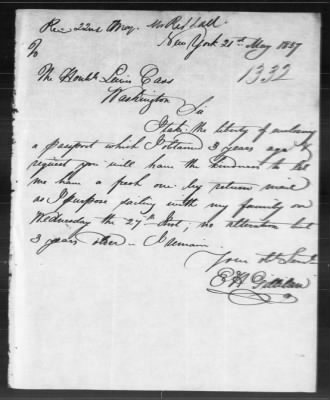 Rec 22nd May. Mr Reddall
New York 21st May 1857
1332
To
The Honble Lewis Cass
Washington
Sir
I take the liberty of enclosing
a passport which I obtained 3 years ago &
request you will have the kindness to let
me have a fresh one by return mail
as I purpose sailing with my family on
Wednesday the 27th Inst, no alteration but
3 years older. I remain
Your Obt Servt
E H